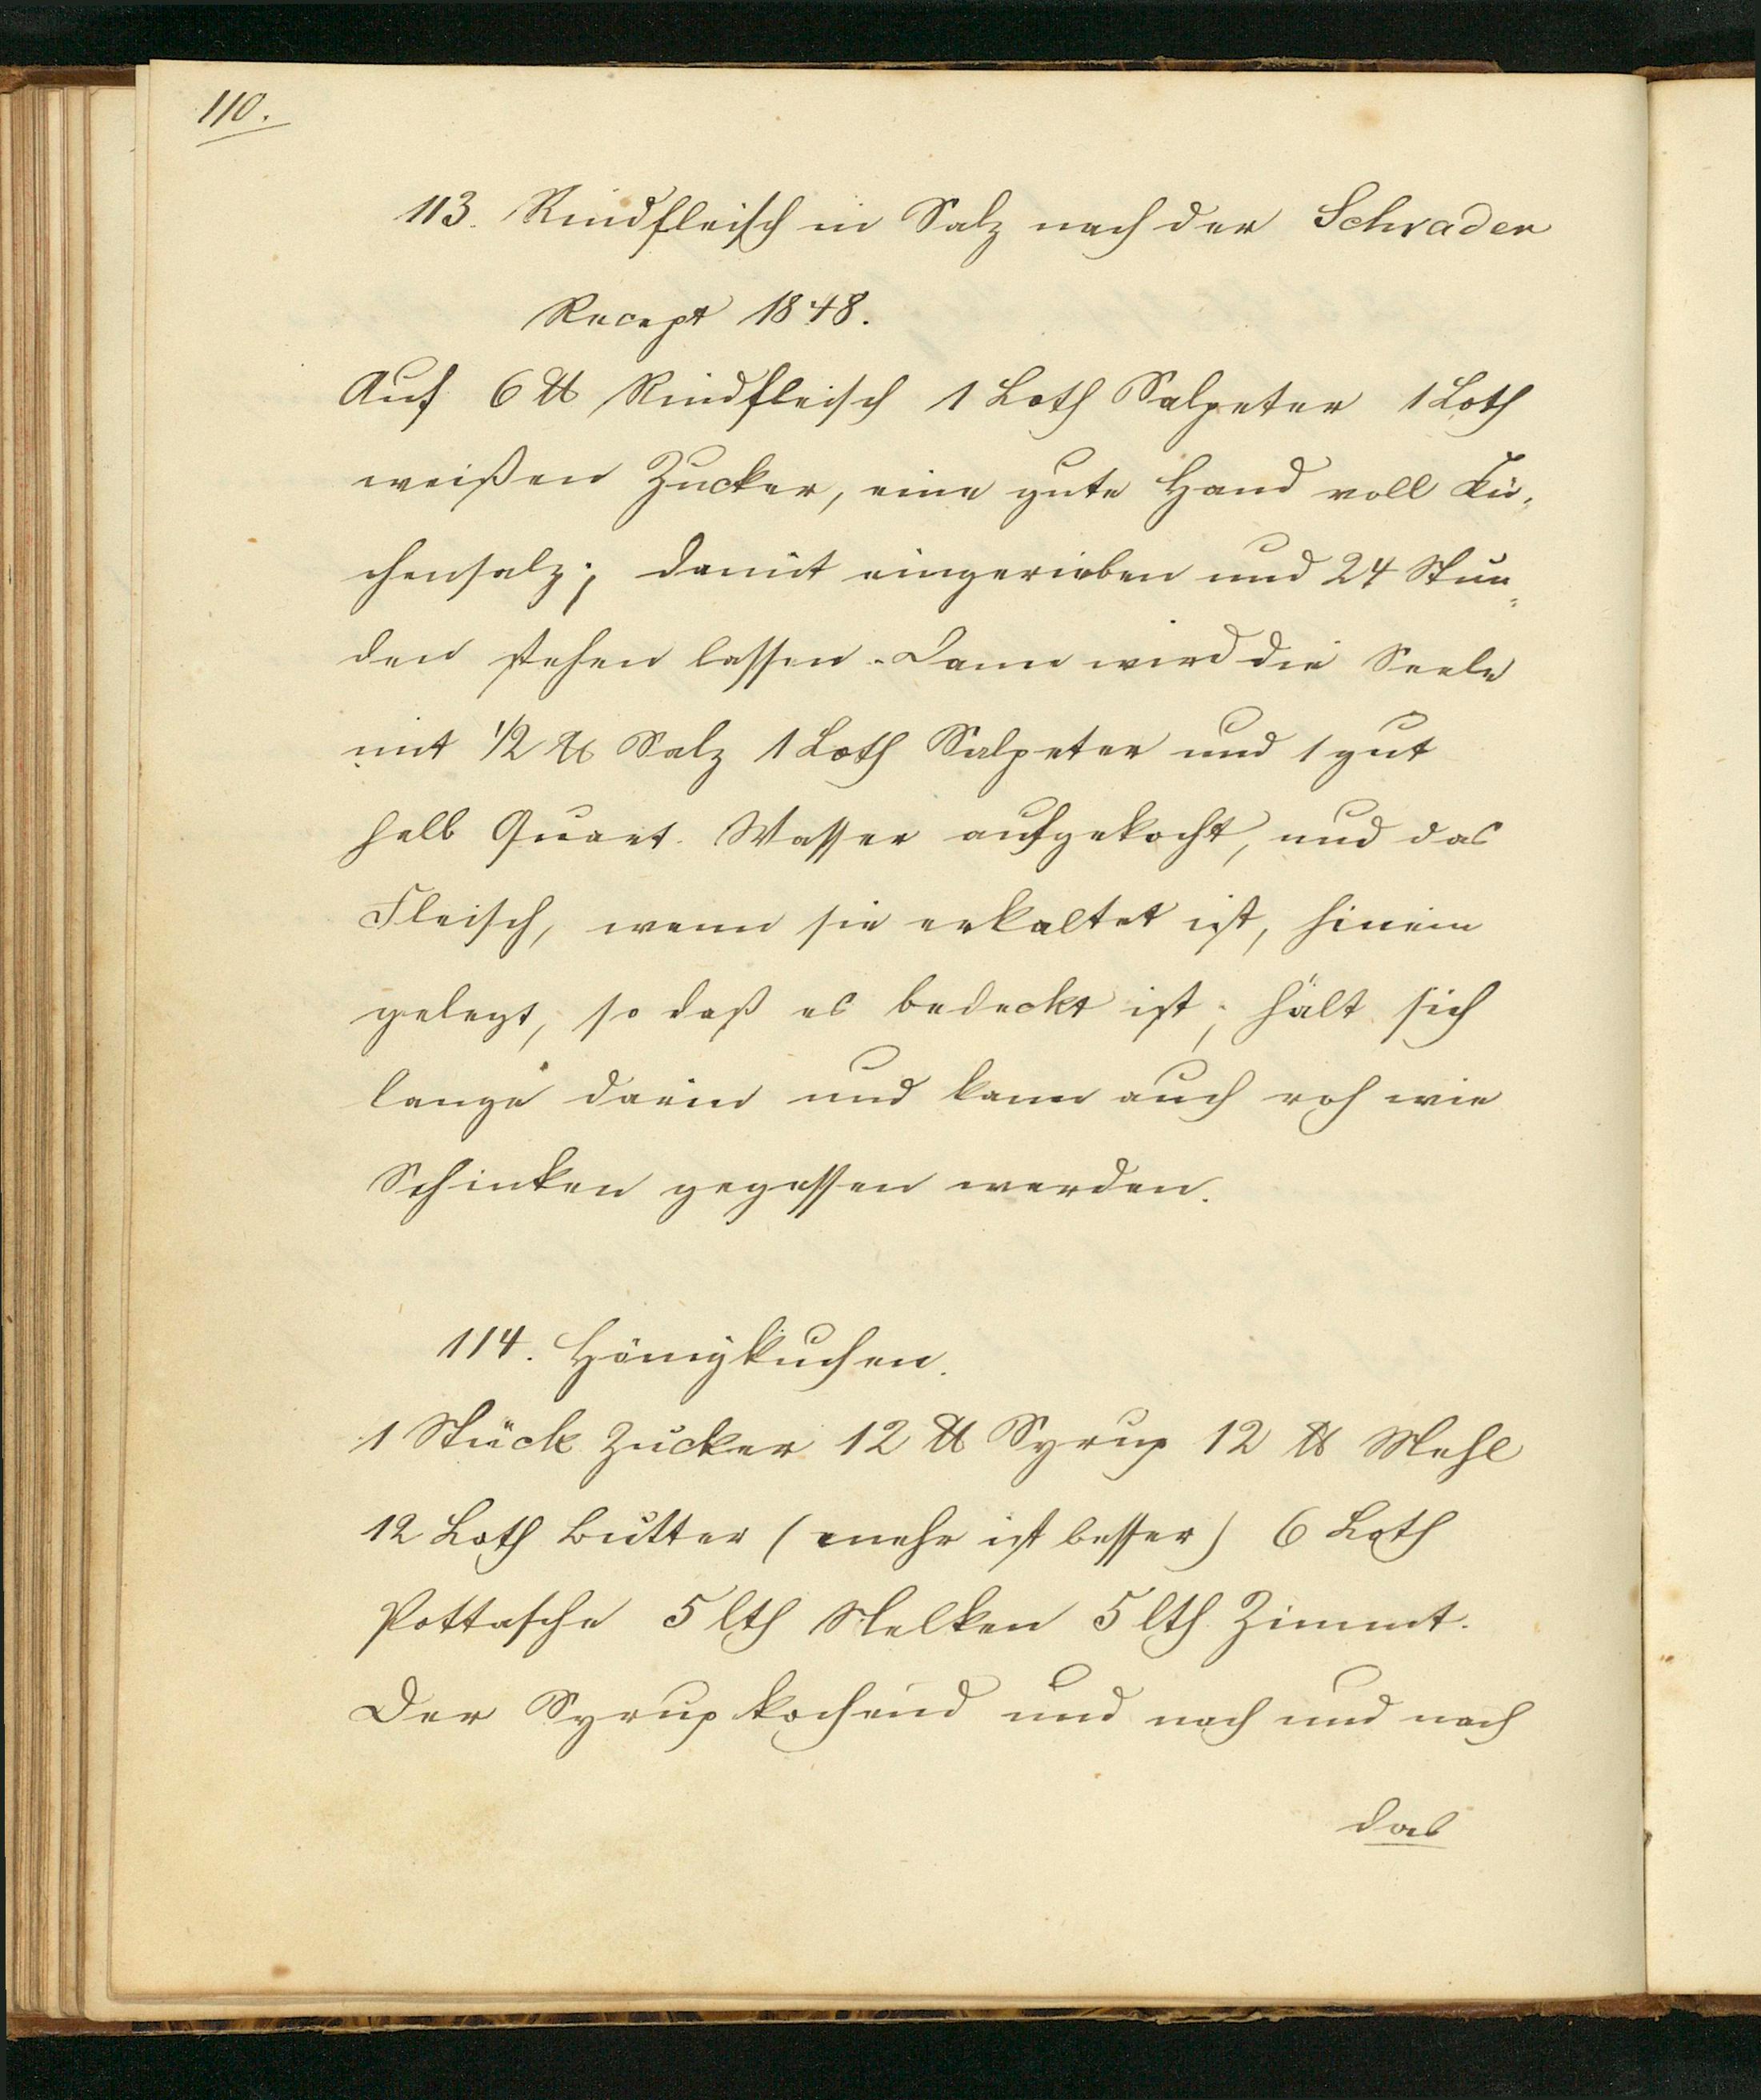 110.
113. Rindfleisch in Salz nach der Schrader
Recept 1848.
Auf 6 ℔ Rindfleisch 1 Loth Salpeter 1 Loth
weißen Zucker, eine gute Hand voll Kü-
chensalz; damit eingerieben und 24 Stun=
den stehen lassen. Dann wird die Seele
mit 1/2 ℔ Salz 1 Loth Salpeter und 1 gut
halb Quart. Wasser aufgekocht, und das
Fleisch, wenn sie erkaltet ist, hinein
gelegt, so daß es bedeckt ist; hält sich
lange darin und kann auch roh wie
Schinken gegessen werden.
114. Hönigkuchen.
1 Stück Zucker 12 ℔ Syrup 12 ℔ Mehl
12 Loth Butter (mehr ist besser) 6 Loth
Pottasche 5 lth Nelken 5 lth Zimmt.
Der Syrup kochend und nach und nach
das